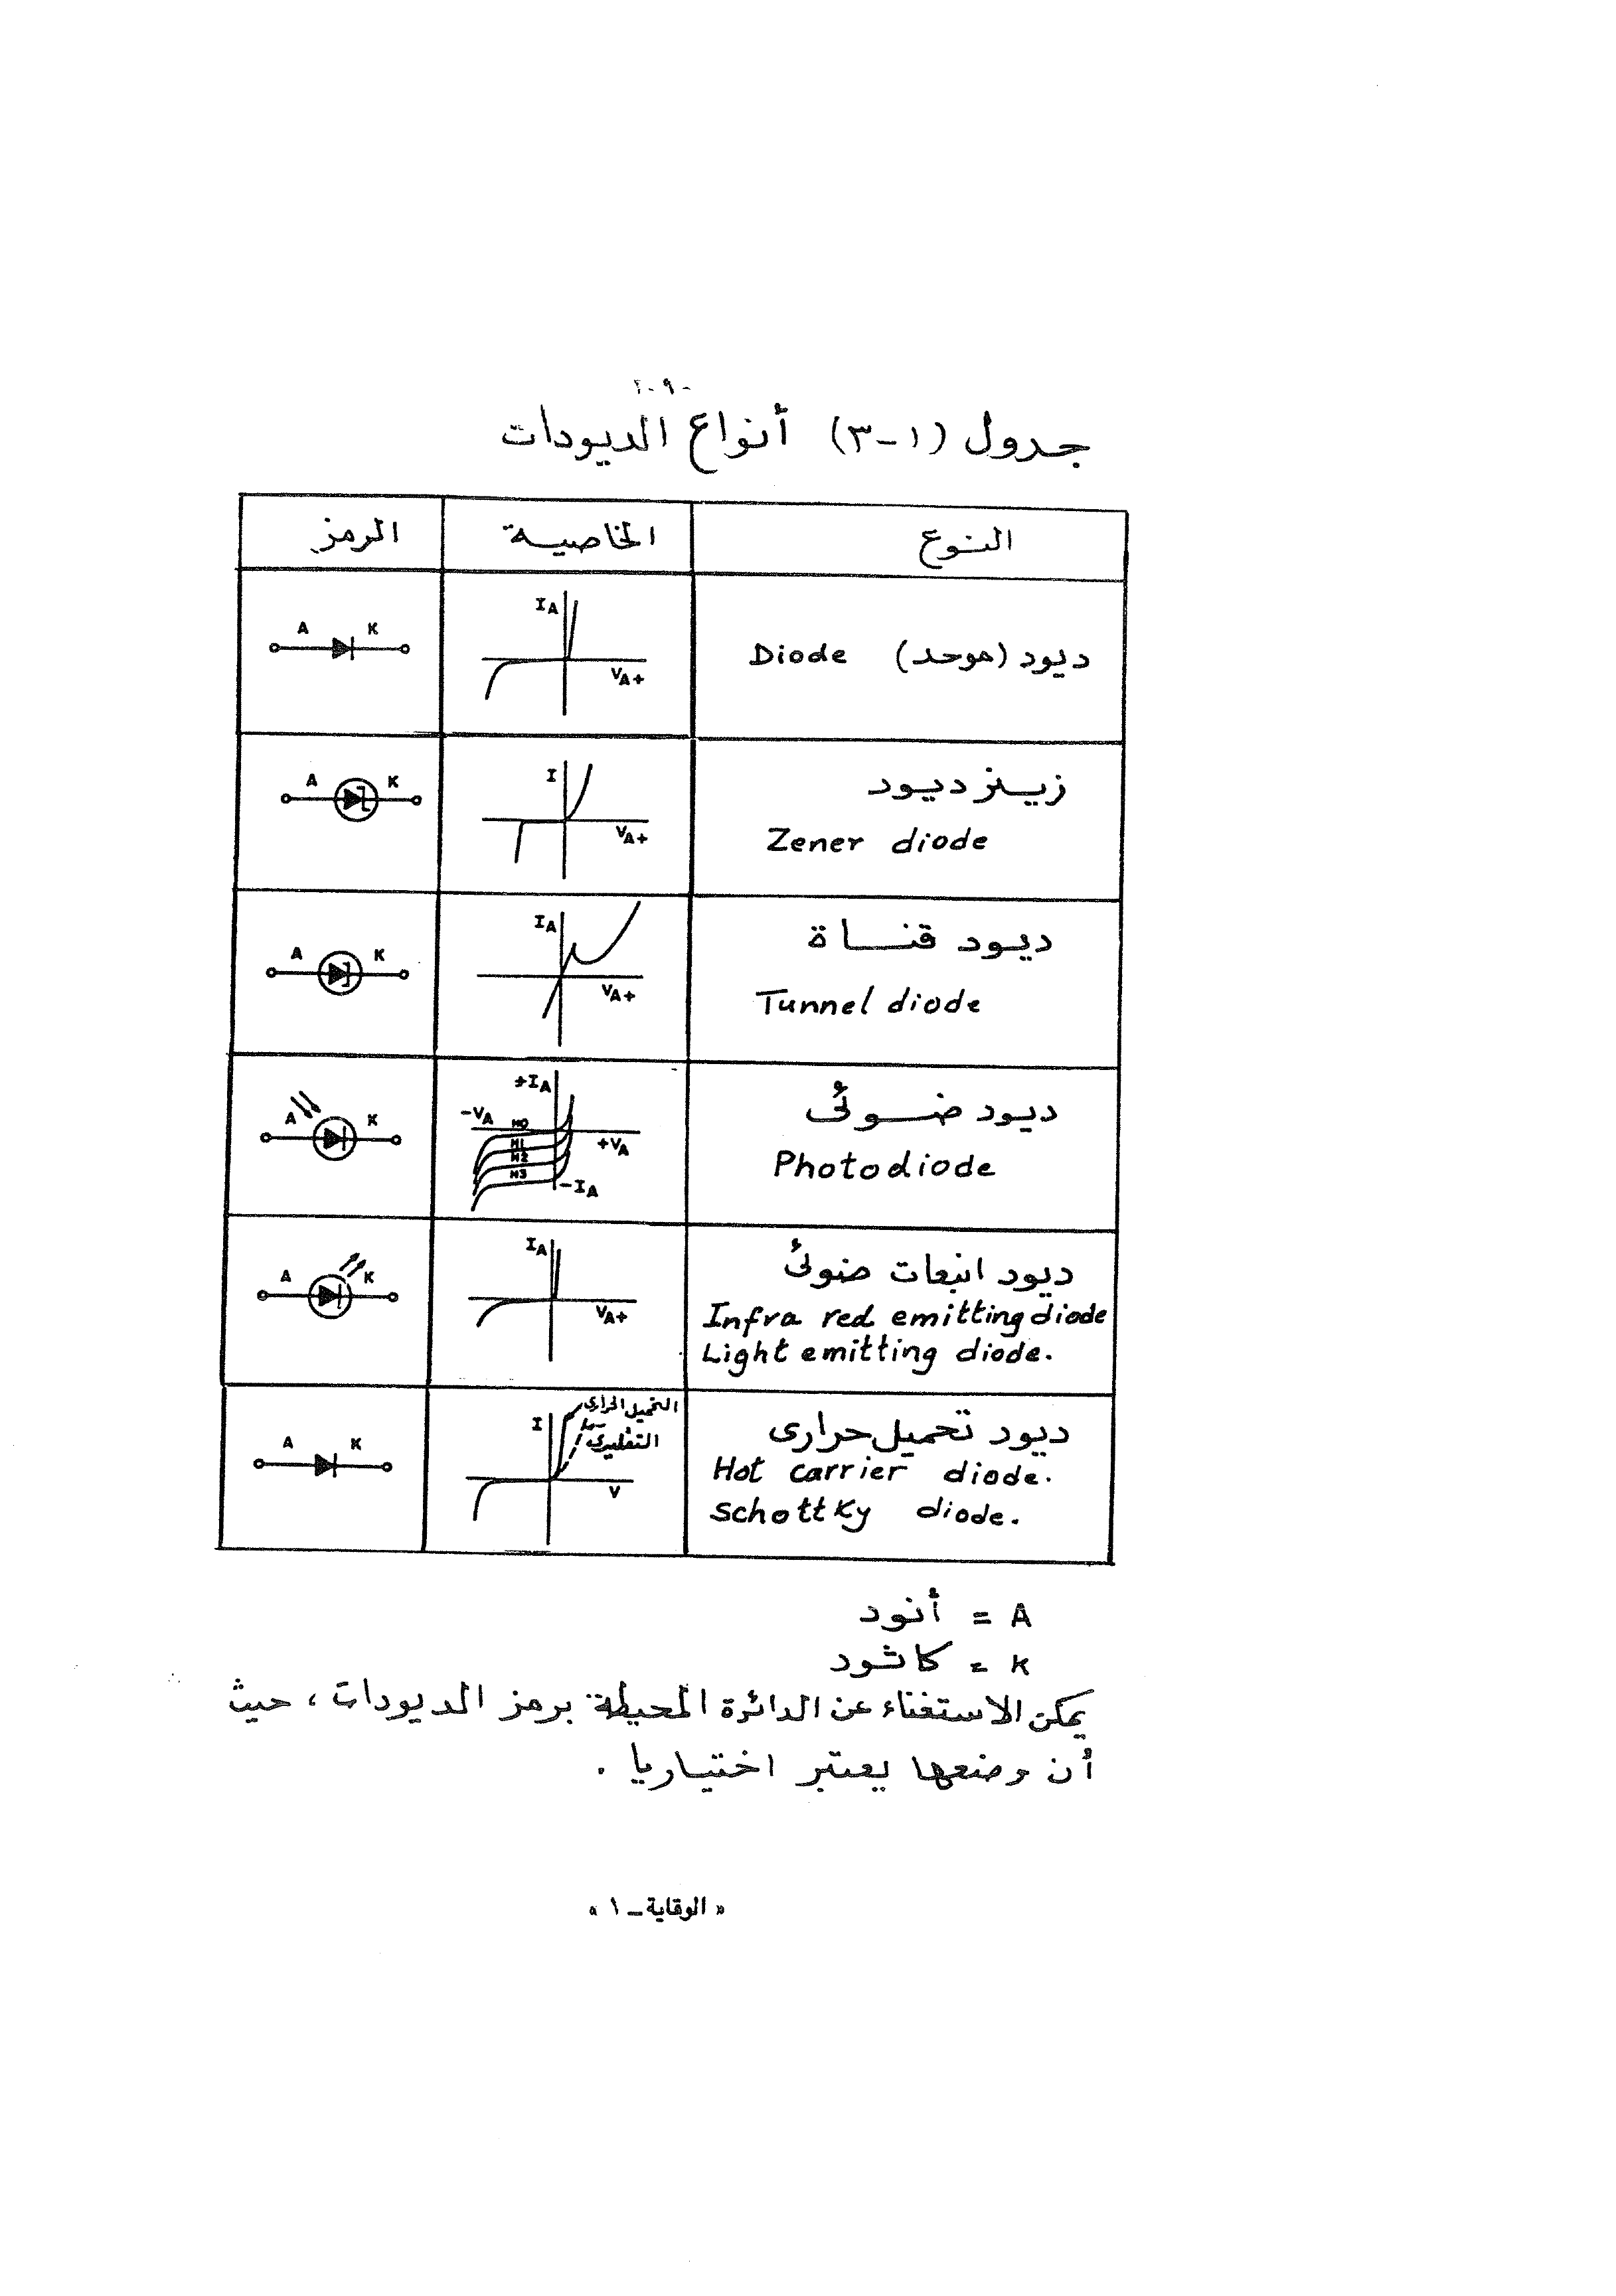 - ٢٠٩
جدول (١-٣) أنواع الديودات
النوع الخاصية الرمز
ديود (موحد) Diode
I A
V A +
A K
زينر ديود
Zener diode
I
V A +
A K
ديود قناة
Tunnel diode
I A
V A +
A K
ديود ضوئى
Photodiode
+I A
-V A
H0
H1
H2
H3
+V A
-I A
A K
ديود انبعات ضوئى
Infra red emitting diode
Light emitting diode.
I A
V A +
A K
ديود تحميل حرارى
Hot carrier diode.
Schottky diode.
التحميل الحرارى
التقليدى
I
V
A K
A = أنود
K = كاثود
يمكن الاستغناء عن الدائرة المحيطة برمز الديودات ، حيث
أن وضعها يعتبر اختياريا .
« الوقاية ـ ١ »